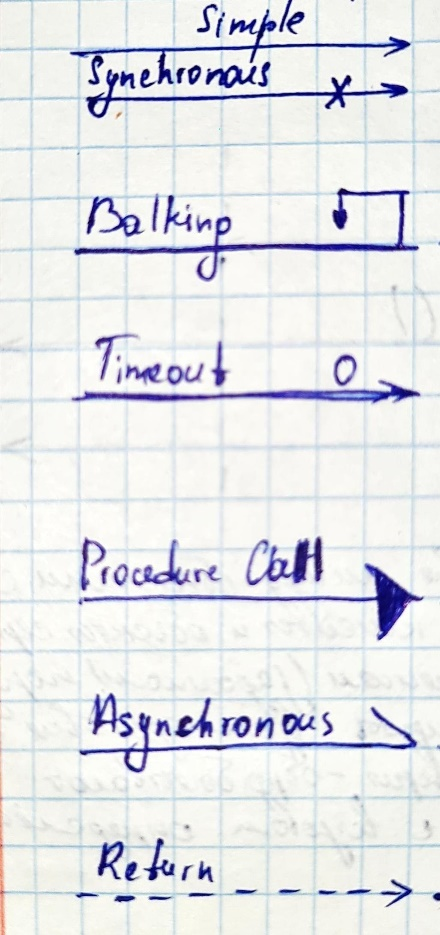 Simple
Synchronous
Balking
Timeout
Procedure Call
Asynchronous
Return